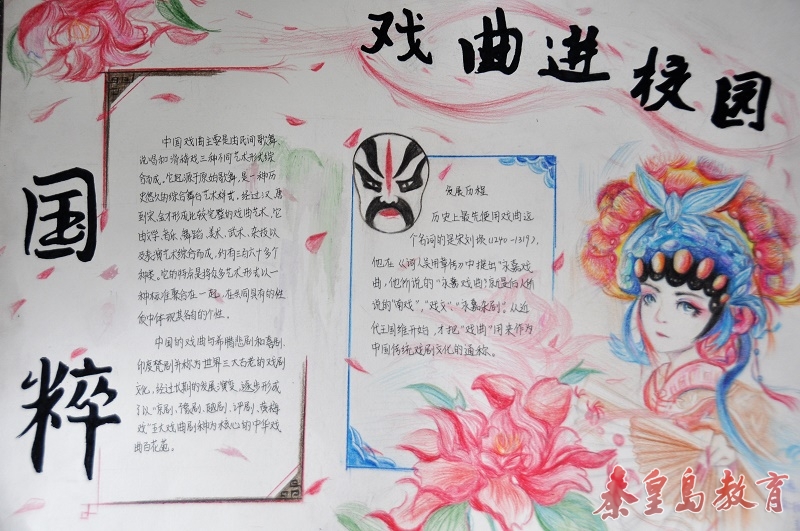 戏曲进校园
国粹
中国戏曲主要是由民间歌舞、
说唱和滑稽戏三种不同艺术形式综
合而成。它起源于原始歌舞,是一种历
史悠久的综合舞台艺术样式。经过汉、唐
到宋、金才形成比较完整的戏曲艺术,它
由文学、音乐、舞蹈、美术、武术、杂技以
及表演艺术综合而成,约有三百六十多个
种类。它的特点是将众多艺术形式以一
种标准聚合在一起,在共同具有的性
质中体现其各自的个性。
中国的戏曲与希腊悲剧和喜剧、
印度梵剧并称为世界三大古老的戏剧
文化,经过长期的发展演变,逐步形成
了以“京剧、豫剧、越剧、评剧、黄梅
戏”五大戏曲剧种为核心的中华戏
曲百花苑。
发展历程
历史上最先使用戏曲这
个名词的是宋刘埙(1240-1319),
他在《词人吴用章传》中提出“永嘉戏
曲,他所说的“永嘉戏曲”就是后人所
说的“南戏”、“戏文”、“永嘉杂剧”。从近
代王国维开始,才把“戏曲”用来作为
中国传统戏剧文化的通称。
秦皇岛教育